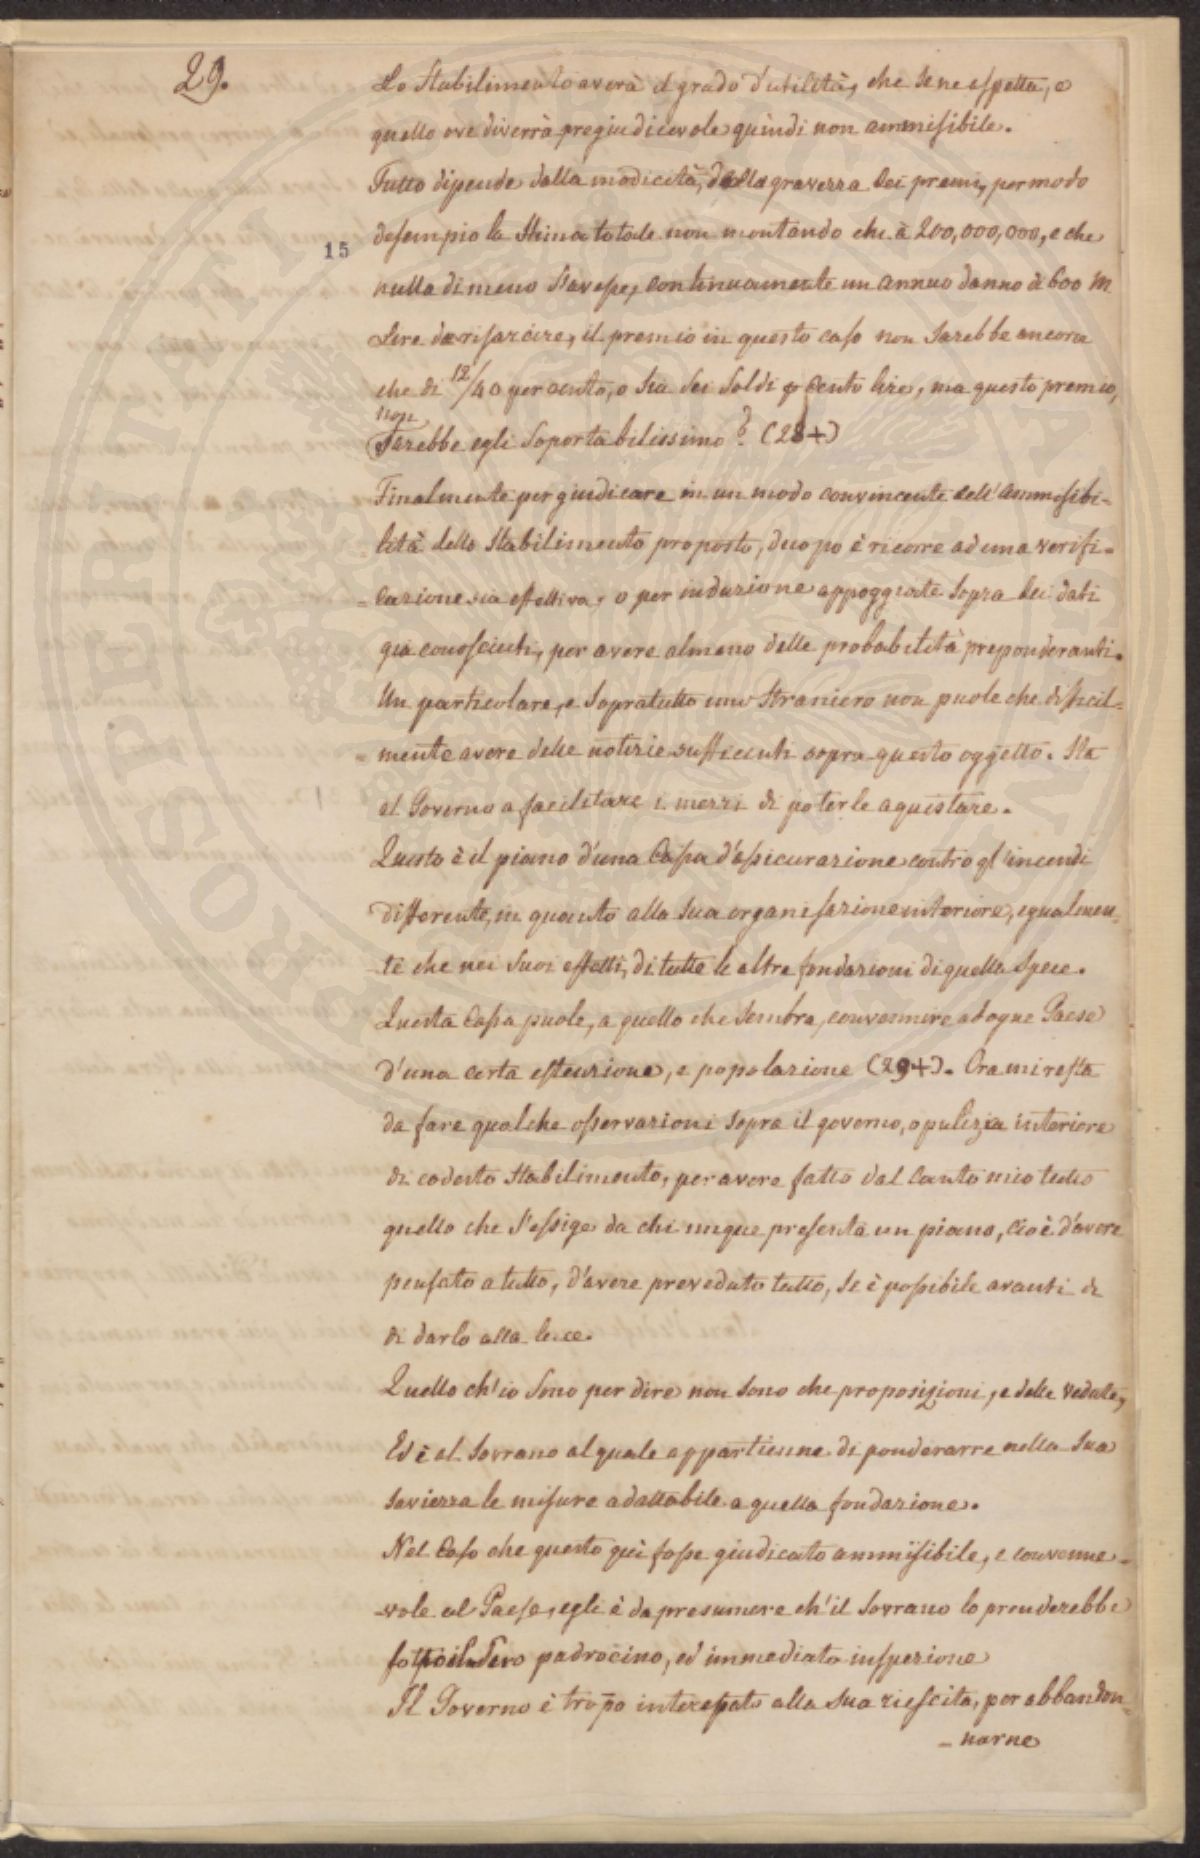 29.
Lo Stabilimento averà il grado d'utilità, che se ne aspetta, e
quello ove diverrà pregiudicevole quindi non ammisibile.
Tutto dipende dalla modicità, della gravezza dei premi, per modo
15
desempio la Stima totale non montando che à 200,000,000, e che
nulla di meno s'avesse, continuamente un annuo danno di 600 M
Lire da risarcire, il premio in questo caso non sarebbe ancora
che di 12/40 per cento, o sia sei soldi p cento lire, ma questo premio,
non
sarebbe egli soportabilissimo? (28+)
Finalmente per giudicare in un modo convincente dell'ammisibi-
lità dello Stabilimento proposto, duopo è ricorre ad una verifi-
-cazione sia effettiva, o per induzione appoggiate sopra dei dati
già conosciuti, per avere almeno delle probabilità preponderanti.
Un particolare, e sopratutto uno straniero non puole che dificil-
-mente avere delle notizie sufficienti sopra questo oggetto. Sta
al Governo a facilitare i mezzi di poterle aquistare.
Questo è il piano d'una Cassa d'assicurazione contro gl'incendi
differente, in quanto alla sua organisazione interiore, egualmen-
te che nei suoi effetti, di tutte le altre fondazioni di quella spece.
Questa Cassa puole, a quello che sembra, convennire ad ogne Paese
d'una certa estenzione, e popolazione (29+). Ora mi resta
da fare qualche osservazioni sopra il governo, o pulizia interiore
di codesto Stabilimento, per avere fatto dal canto mio tutto
quello che s'essige da chi unque presenta un piano, cioè d'avere
pensato a tutto, d'avere preveduto tutto, se è possibile avanti di
di darlo alla luce.
Quello ch'io sono per dire non sono che proposizioni, e delle vedute,
Ed è al Sovrano al quale appartienne di ponderarre nella sua
saviezza le misure adattabile a quella fondazione.
Nel Caso che questo quì fosse giudicato ammisibile, e convenne-
-vole al Paese, egli è da presumere ch'il Sovrano lo prenderebbe
padrocino, ed immediata inspezione
Il Governo è tropo interessato alla sua riescita, per abbandon-
-narne
PROSPERITATI PUBLICAE AUGENDAE